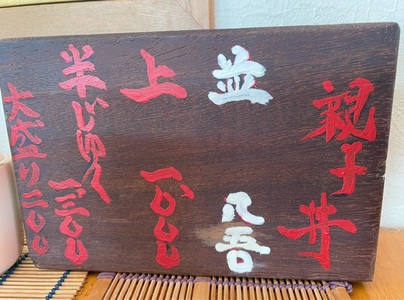 親子丼
並 八五〇
上 一〇〇〇
半じゅく 一三〇〇
大盛り 二〇〇